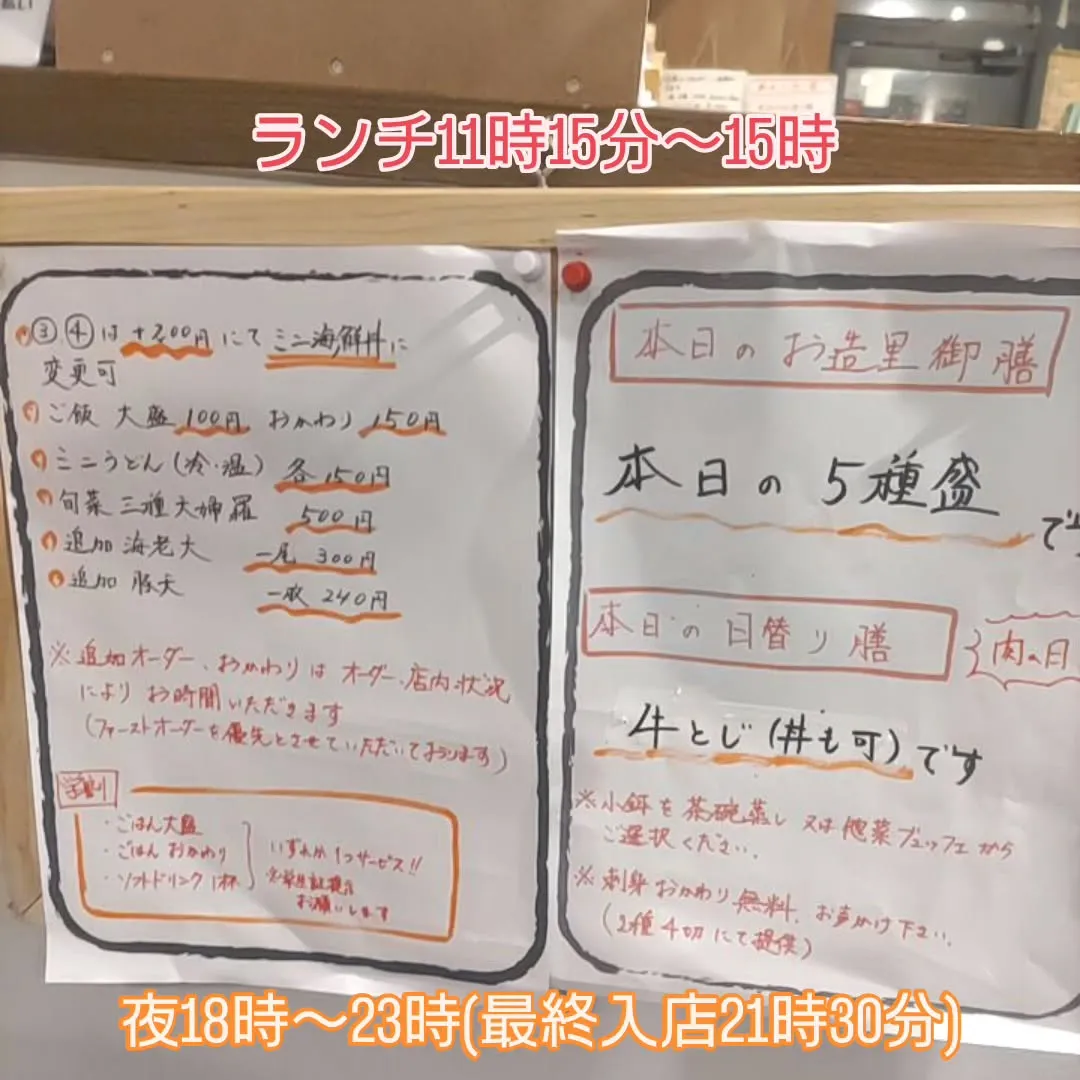 ランチ11時15分〜15時
③④は+200円にてミニ海鮮丼に
変更可
ご飯 大盛100円 おかわり150円
ミニうどん(冷・温) 各150円
旬菜三種天婦羅 500円
追加海老天 一尾300円
追加 豚天 一枚240円
※追加オーダー、おかわりはオーダー、店内状況
によりお時間いただきます
(ファーストオーダーを優先とさせていただいております)
学割
・ごはん大盛
・ごはんおかわり
・ソフトドリンク1杯
いずれか1つサービス!!
※学生証提示
お願いします
本日のお造里御膳
本日の5種盛
です
本日の日替り膳
肉の日
牛とじ(丼も可)です
※小鉢を茶碗蒸し又は惣菜ブュッフェから
ご選択ください。
※刺身おかわり無料、お声がけ下さい。
(2種4切にて提供)
夜18時〜23時(最終入店21時30分)